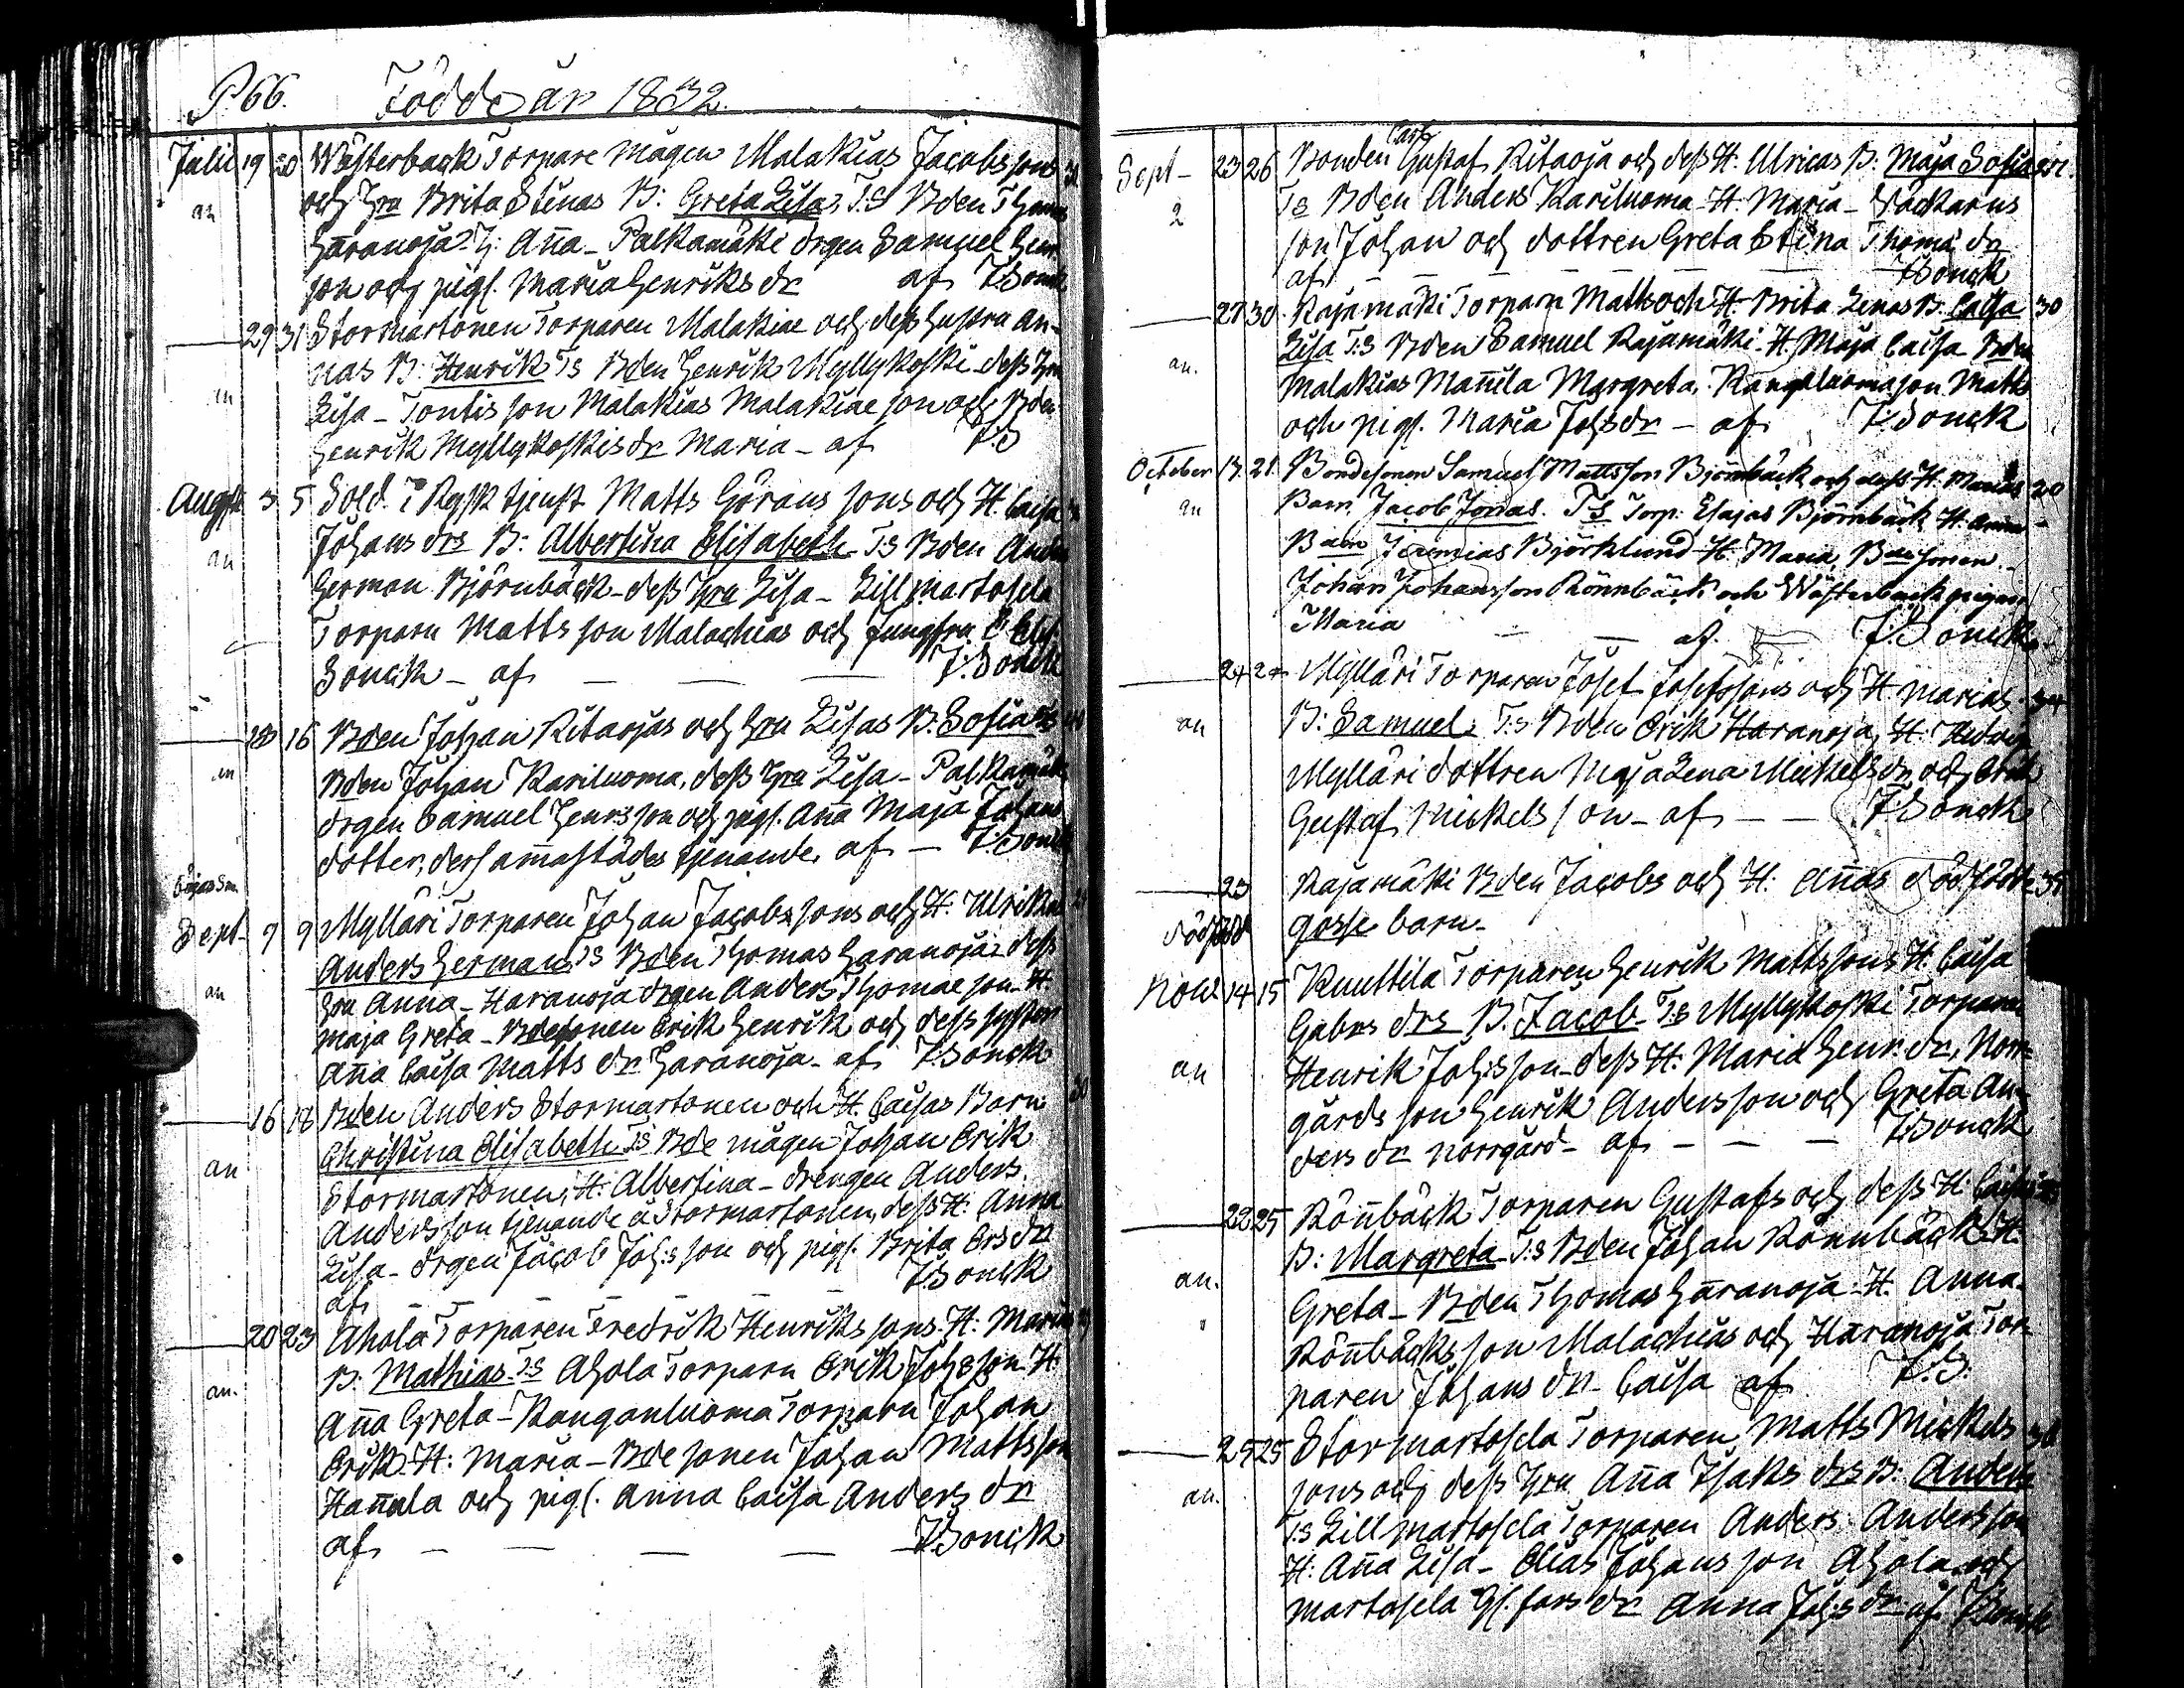 P 66. Födde år 1832.
Julii 19 20 Wästerback Torpare mågen Malakias Jacobs sons
an och Hru Brita Stinas B: Greta Lisa, T:S Bden Thomas
Haranoja H: Anna - Palkamäki drgen Samuel Henr:
son och pigs. Maria Henriks dr af J: Bonck
29 31 Stormartonen Torparen Malakiae och dess hustru An-
an nas B: Henrik Ts Bden Henrik Myllykoski dess Hru
Lisa - Tontis son Malakias Malakiae son och Bden
Henrik Myllykoskis dr Maria - af J.B
Augsti 3 5 Sold. i Rysk tjenst Matts Görans sons och H. Caisa
an Johans drs B: Albertina Elisabeth T:s Bden Anders
Herman Björnbäck - dess Hru Lisa - Lillmartosela
Torparn Matts son Malachias och Jungfru E Elis:
Bonck - af J: Bonck
13 16 Bden Johan Ritaojas och Hru Lisas B: Sofia Ts
an Bden Johan Kariluoma, dess Hru Lisa - Palkamäki
drgen Samuel Henrs son och pigs. Anna Maja Johans
dotter, dersammastädes tjenande, af - J: Bonck
Sept - 7 9 Mylläri Torparen Johan Jacobs sons och H: Ulrikas
an Anders Herman Ts Bden Thomas Haranoja dess
Hru Anna - Haranoja drgen Anders Thomae son - H:
Maja Greta - Bdesonen Erik Henrik och dess syster
Anna Caisa Matts dr Haranoja - af J: Bonck
16 18 Bden Anders Stormartonen och H. Caisas Barn
an Christina Elisabeth T:S Bde mågen Johan Erik
Stormartonen, H: Albertina - drengen Anders
Andersson tjenande å Stormartonen, dess H: Anna
Lisa - drgen Jacob Joh:s son och pigs. Brita Ers dr
af J: Bonck
20 23 Ahola Torparen Fredrik Henriks sons H: Marias
an. B: Mathias T:S Ahola Torparn Erik Johs son H:
Anna Greta - Kanganluoma Torparn Johan
Erik H: Maria - Bde sonen Johan Mattsson
Hannula och pigs. Anna Caisa Anders dr
af J: Bonck
Sept - 23 26 Bonden Carl Gustaf Ritaoja och dess H: Ulricas B: Maja Sofia
2 Ts Bden Anders Kariluoma - H: Maria -
son Johan och dottren Greta Stina Thomae dr
af J: Bonck
27 30 Rajamäki Torparn Matts och H Brita Lenas B: Caisa 30
an. Lisa T:S Bden Samuel Rajamäki - H. Maja Caisa Bden
Malakias Mannila Margreta, Kangasluoma son Matts
och pigs. Maria Joh:s dr - af J: Bonck
October 17. 21. Bondesonen Samuel Mattsson Björnbäck och dess H: Marias 20
an Barn Jacob Jonas. T.S. Torp: Elajas Björnbäck H. Anna
Bden Jeremias Björklund H: Maria, Bdesonen
Johan Johansson Rönnbäck och Wästerback pigan
Maria af. J: Bonck
24 27 Mylläri Torparen Josef Josefssons och H Marias 34
an B: Samuel, T:s Bden Erik Haranoja, H: Hedvig
Mylläri dottren Maja Lena Mickels dr och Erik
Gustaf Mickels son - af - J: Bonck
23 Rajamäki Bden Jacobs och H: Annas dödfödt 39
dödfödd gosse barn -
Nov: 14 15 Knuttila Torparen Henrik Mattssons H Caisa
an Gabrs drs B. Jacob - T:s Myllykoski Torparn
Henrik Joh:s son - dess H: Maria Henr: dr, Norr-
gårds son Henrik Andersson och Greta An-
ders dr Norrgård - af - J: Bonck
22 25 Rönnbäck Torparen Gustafs och dess H: Caisas
an. B: Margreta T:s Bden Johan Rönnbäck H:
Greta - Bden Thomas Haranoja H. Anna
Rönnbäcks son Malachias och Haranoja Tor-
paren Johans dr - Caisa af J.B.
25 25 Stor martosela Torparen Matts Mickels 36
an. sons och dess Hru Anna Isaks drs B: Anders
T:s Lill martosela Torparen Anders Andersson
H: Anna Lisa - Elias Johans son Ahola och
Martosela Gl. fars dr Anna Joh:s dr af J: Bonck